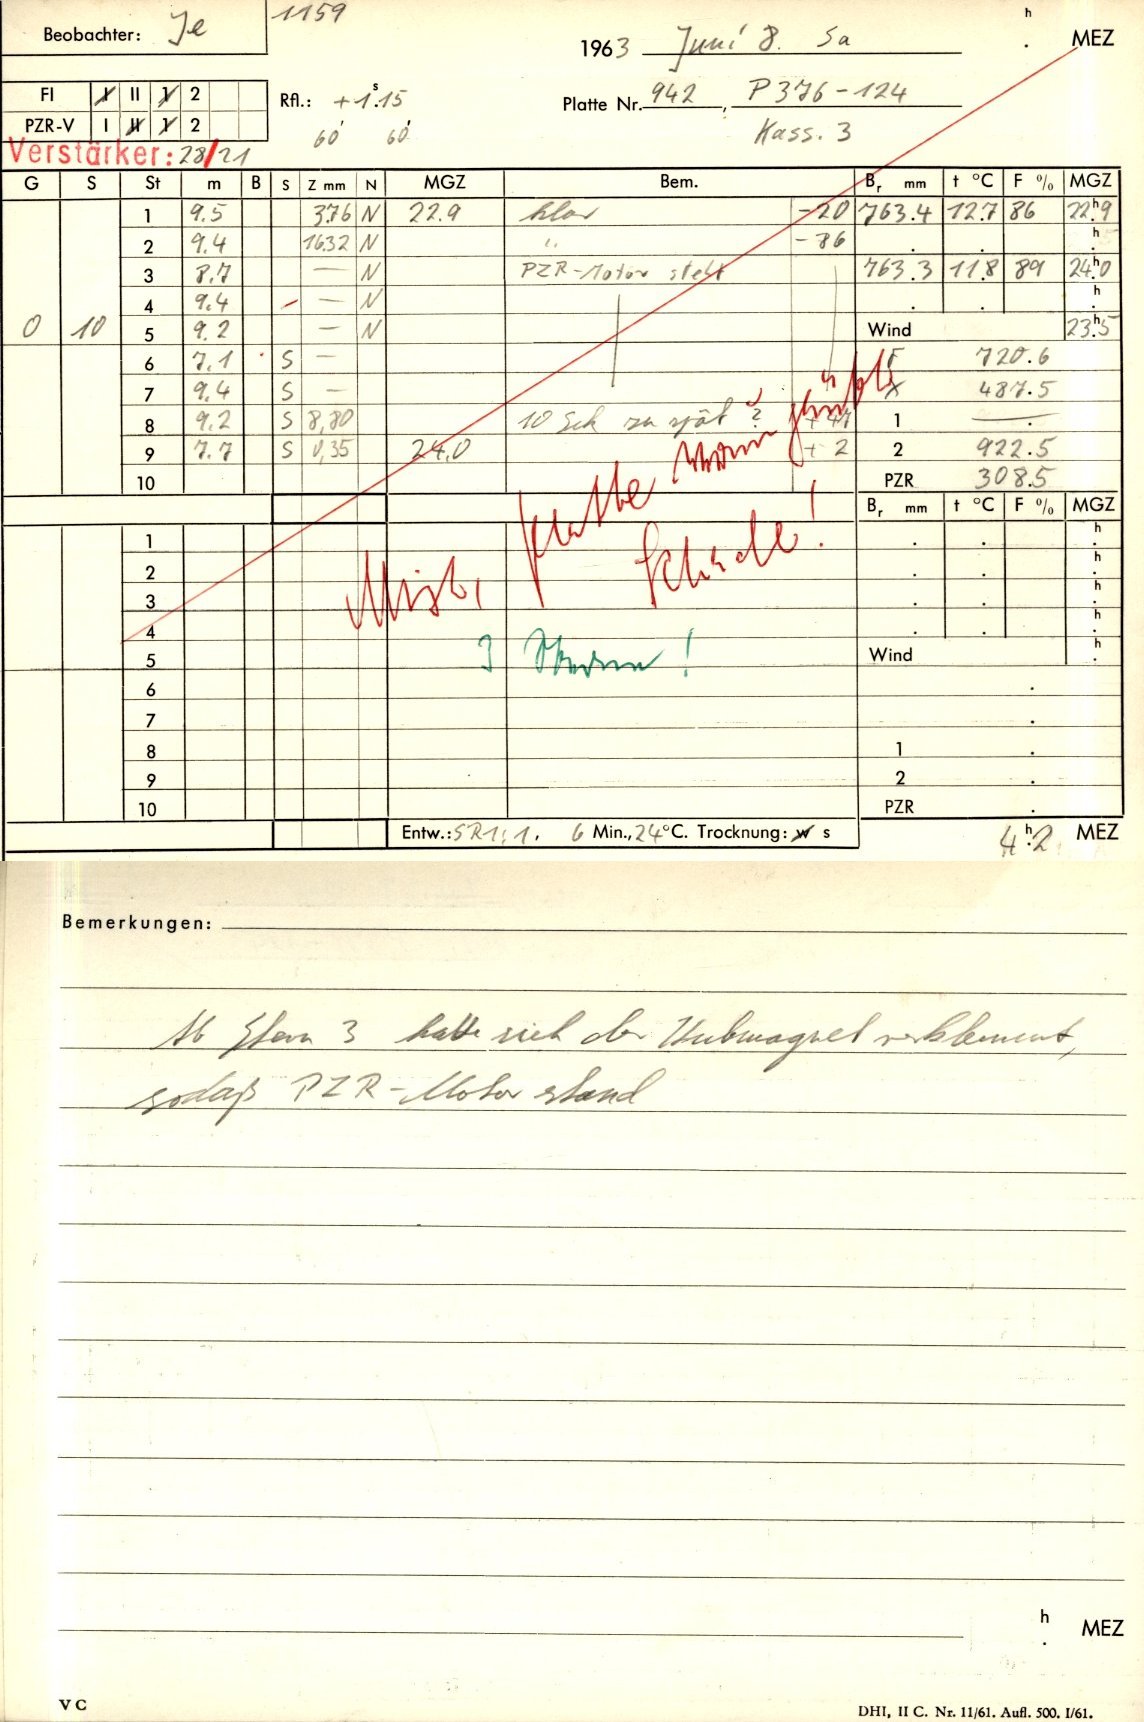 Beobachter: Je
1159
1963 Juni 8. Sa
h . MEZ
FI I II 1 2
PZR-V I II 1 2
Rfl.: + 1.s15
60' 60'
Platte Nr. 942, P 376-124
Kass. 3
Verstärker: 28/21
G S St m B S Z mm N MGZ Bem. Br mm t °C F % MGZ
1 9.5 376 N 22.9 klar -20 763.4 12.7 86 22.h9
2 9.4 1632 N " -86 . . h
3 8.7 — N PZR-Motor steht 763.3 11.8 89 24.h0
4 9.4 — N . . h .
0 10 5 9.2 — N Wind 23.h5
6 7.1 S — F 720.6
7 9.4 S — X 487.5
8 9.2 S 8,80 10 Sek zu spät ? + 41 1 — .
9 7.7 S 0,35 24.0 + 2 2 922.5
10 PZR 308.5
Br mm t °C F % MGZ
1 . . h .
2 . . h .
3 . . h .
4 . . h .
5 Wind h .
6 .
7 .
8 1 .
9 2 .
10 PZR .
Platte
Schade!
3 Sterne!
Entw.: SR 1:1. 6 Min., 24°C. Trocknung: w s
4.h2 MEZ
Bemerkungen:
Ab Stern 3 hatte sich der Hubmagnet verklemmt,
sodaß PZR-Motor stand
h . MEZ
V C
DHI, II C. Nr. 11/61. Aufl. 500. I/61.